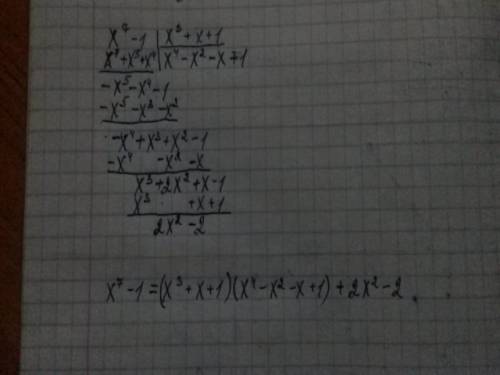 x⁷-1 | x³+x+1
x⁷+x⁵+x⁴ | x⁴-x²-x+1
-x⁵-x⁴-1
-x⁵-x³-x²
-x⁴+x³+x²-1
-x⁴ -x²-x
x³+2x²+x-1
x³ +x+1
2x²-2
x⁷-1=(x³+x+1)(x⁴-x²-x+1)+2x²-2.